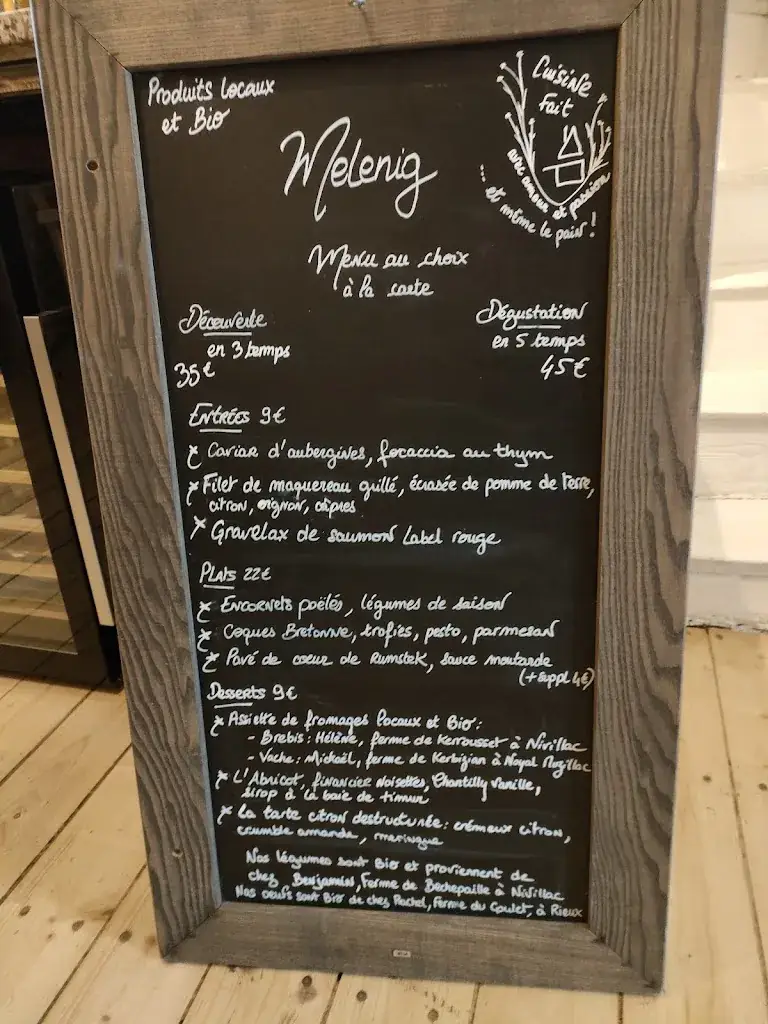 Produits locaux
et Bio
Cuisine
fait
avec amour et passion
... et même le pain !
Melenig
Menu au choix
à la carte
Découverte
en 3 temps
35€
Dégustation
en 5 temps
45€
Entrées 9€
x Caviar d'aubergines, focaccia au thym
x Filet de maquereau grillé, écrasée de pomme de terre,
citron, oignon, câpres
x Gravelax de saumon Label rouge
Plats 22€
x Encornets poëlés, légumes de saison
x Coques Bretonne, trofies, pesto, parmesan
x Pavé de coeur de Rumstek, sauce moutarde
(+ suppl 4€)
Desserts 9€
x Assiette de fromages locaux et Bio :
- Brebis : Hélène, ferme de Kerrousset à Nivillac
- Vache : Mickaël, ferme de Kerbizian à Noyal Muzillac
x L'Abricot, financier Noisettes, Chantilly vanille,
sirop à la baie de timur
x La tarte citron destructurée : crémeux citron,
crumble amande, meringue
Nos légumes sont Bio et proviennent de
chez Benjamin, Ferme de Bechepaille à Nivillac
Nos oeufs sont Bio de chez Rachel, Ferme du Goulet, à Rieux